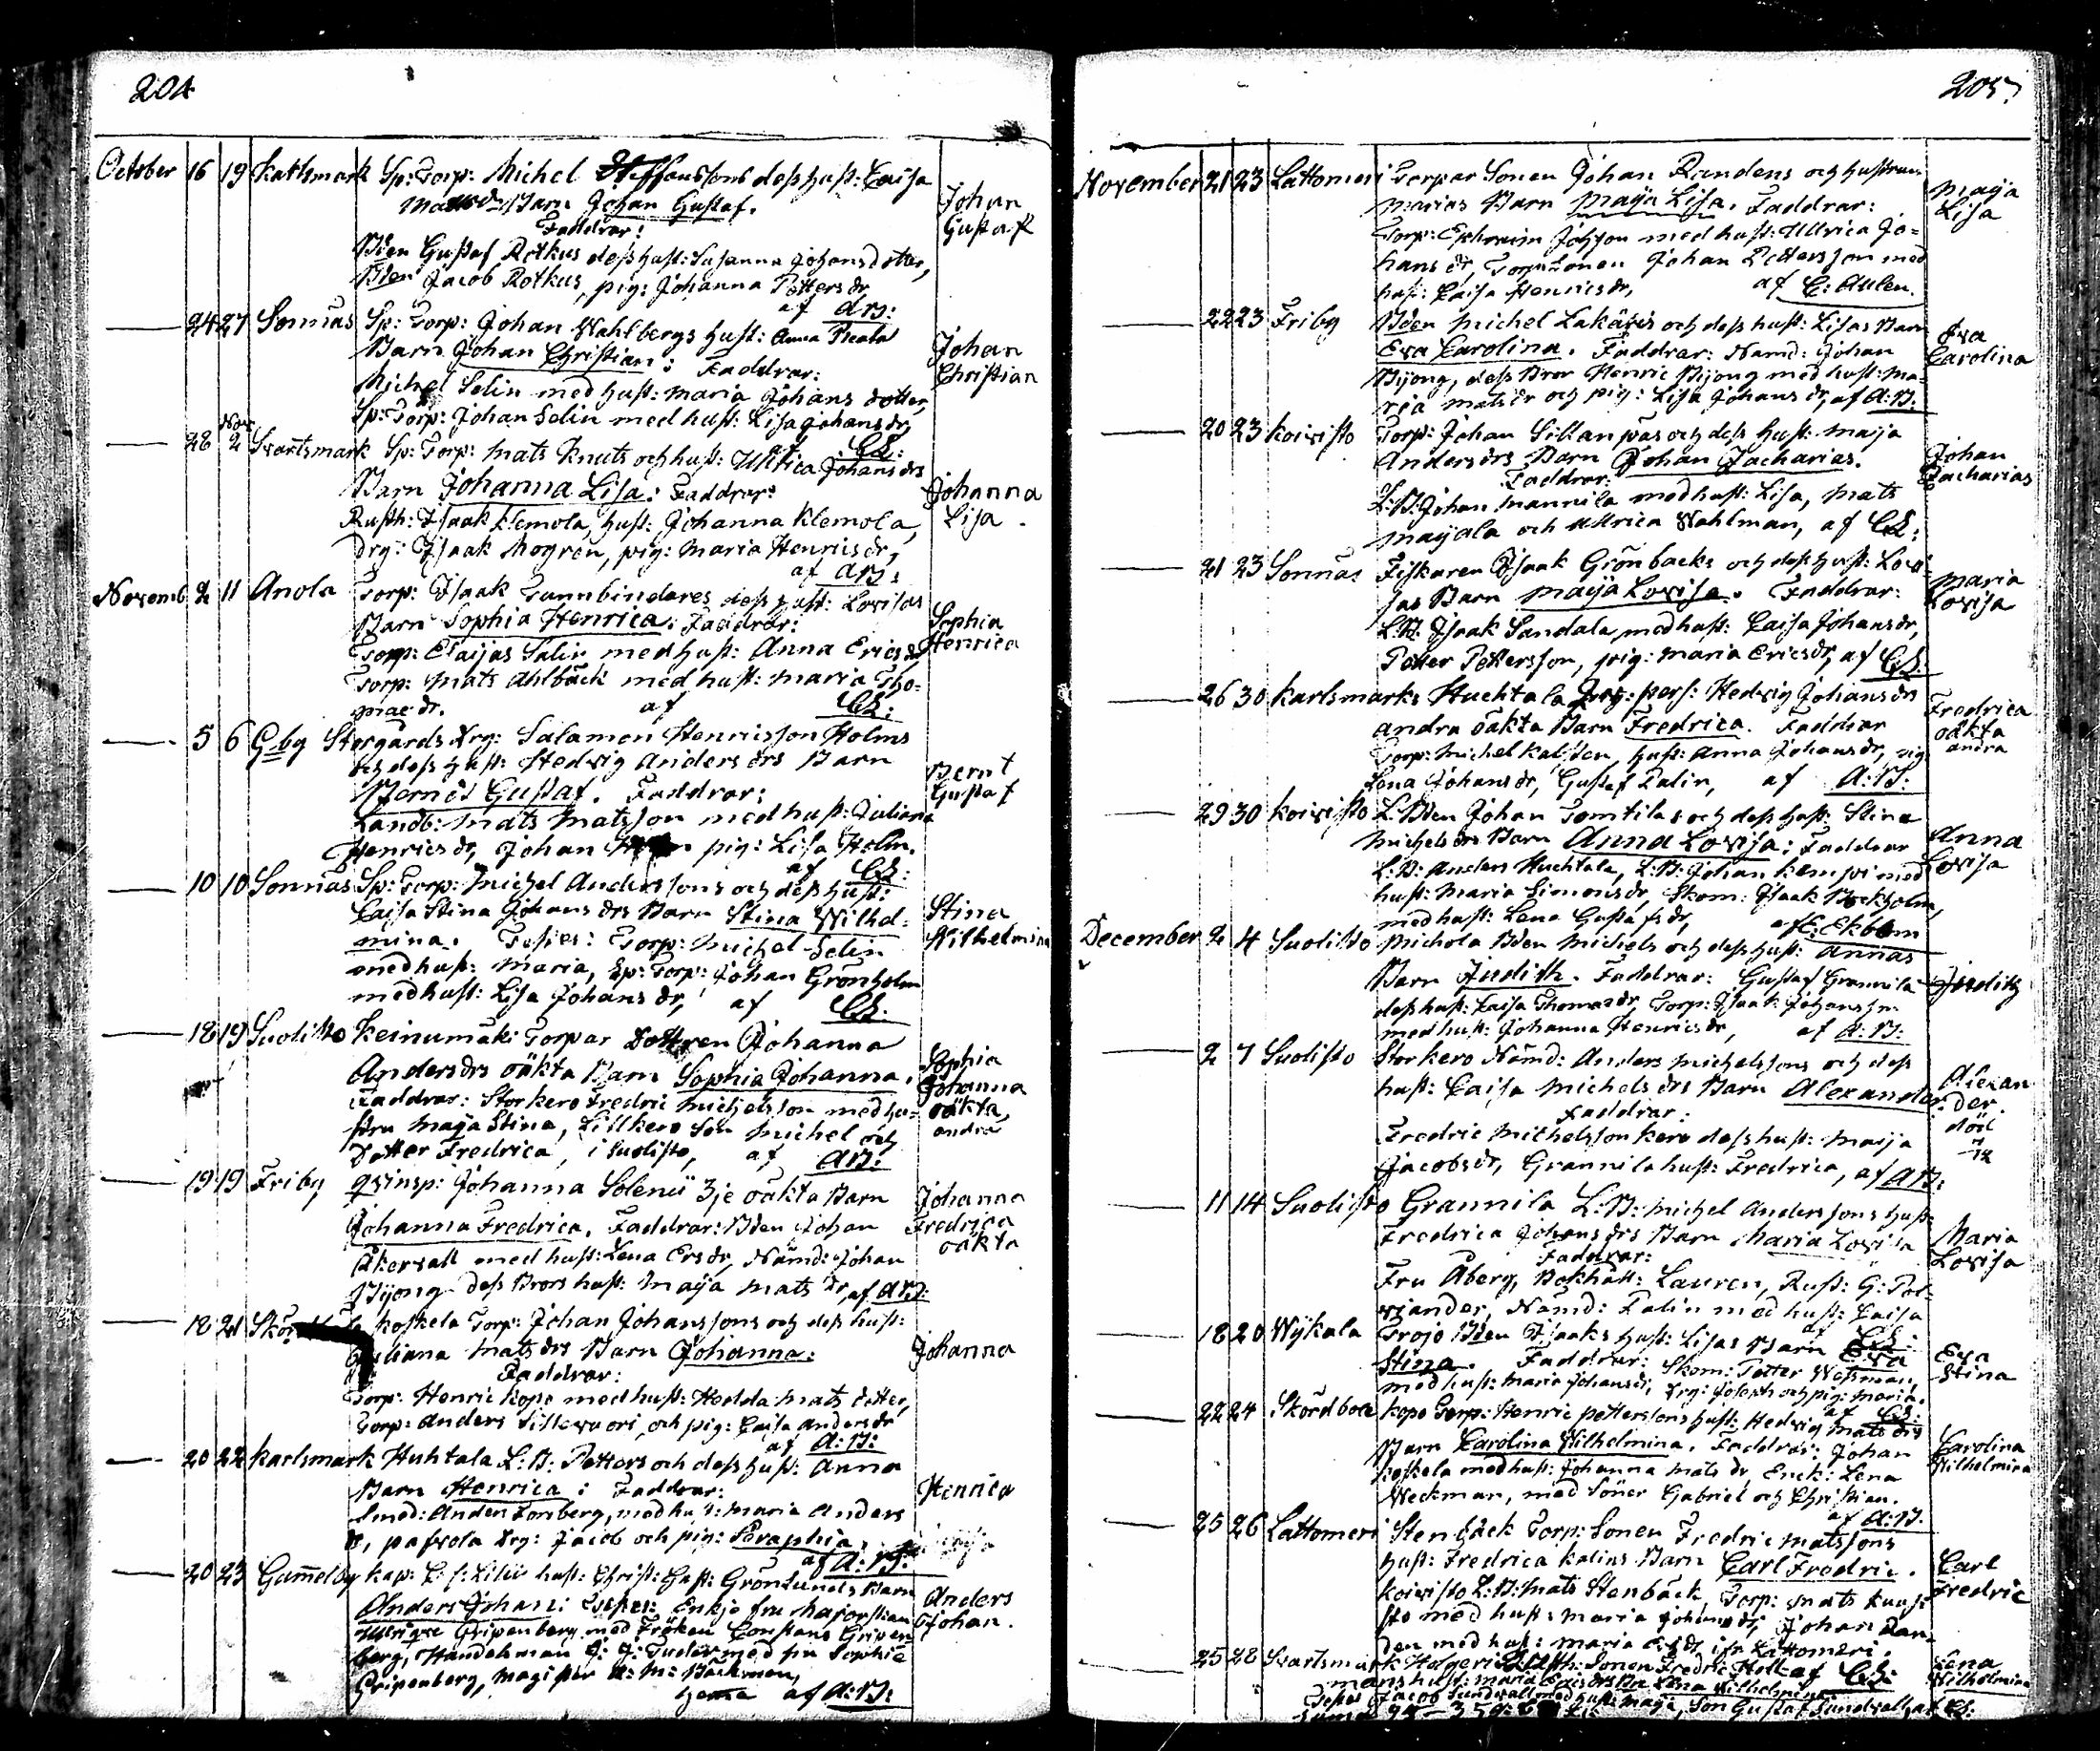 204
October 16 19 Karlsmark Sp: Torp: Michel Steffanssons dess hust: Caisa
Matsdrs Barn Johan Gustaf.
Johan
Gustaf
Faddrar:
Bden Gustaf Rotkus dess hust: Susanna Johansdotter,
Bden Jacob Rotkus, pig: Johanna Pettersdr
af AB:
24 27 Sonnäs Sp: Torp: Johan Wahlbergs hust: Anna
Barn Johan Christian: Faddrar:
Johan
Christian
Michel Selin med hust: Maria Johans dotter,
Sp: Torp: Johan Selin med hust: Lisa Johansdr,
28 Nov 2 Svartsmark Sp: Torp: Mats Knuts och hust: Ulrica Johansdrs
Barn Johanna Lisa: Faddrar:
Johanna
Lisa
Rusth: Isaak Klemola, hust: Johanna Klemola,
drg: Isaak Mogren, pig: Maria Henricsdr,
af AB:
Novemb 2 11 Anola Torp: Isaak Tunnbindares dess hust: Lovisas
Barn Sophia Henrica: Faddrar:
Sophia
Henrica
Torp: Elaijas Salin med hust: Anna Ericsdr
Torp: Mats Ahlbäck med hust: Maria Tho-
mae dr. af
5 6 G by Storgårds drg: Salamon Henricsson Holms
och dess hust: Hedvig Andersdrs Barn
Bernt Gustaf. Faddrar:
Bernt
Gustaf
Landb: Mats Matsson med hust: Juliana
Henricsdr, Johan pig: Lisa Holm.
af
10 10 Sonnäs Sp: Torp: Michel Anderssons och dess hust:
Caisa Stina Johansdrs Barn Stina Wilhel-
mina. Testes: Torp: Michel Selin
Stina
Wilhelmina
med hust: Maria, Sp: Torp: Johan Grönholm
med hust: Lisa Johansdr, af
18 19 Suolisto Keinumäki Torpar Dottren Johanna
Andersdrs oäkta Barn Sophia Johanna.
Sophia
Johanna
oäkta,
andra
Faddrar: Storkero Fredric Michelsson med hu-
stru Maija Stina, Lillkero Son Michel och
Dotter Fredrica, i Suolisto, af AB:
19 19 Friby qvinsp: Johanna Solenii 3je oäkta Barn
Johanna Fredrica. Faddrar: Bden Johan
Johanna
Fredrica
oäkta
Åkervall med hust: Lena Ersdr, Nämd: Johan
Bijong dess Brors hust: Maija Matsdr, af AB:
18 21 Koskela Torp: Johan Johanssons och dess hust:
Juliana Matsdrs Barn Johanna:
Johanna
Faddrar:
Torp: Henric Kopo med hust: Hedda Mats dotter,
Torp: Anders och pig: Caisa Andersdr
af A: B:
20 22 Karlsmark Huhtala L: B: Petters och dess hust: Anna
Barn Henrica: Faddrar:
Henrica
Smed: Anders Tonberg, med hust: Maria Anders
dr, drg: Jacob och pig: Seraphia,
af A: B:
20 23 Gamelby Kap: hust: Christ: Gust: Grönlunds Barn
Anders Johan: Testes: Enkje fru Majorskan
Anders
Johan.
Ulrique Gripenberg med Fröken Constans Gripen-
berg, Handelsman J: J: Tuder med fru Sophie
Gripenberg, Magister A: M: Backman,
af A: B:
205
November 21 23 Lattomeri Torpar Sonen Johan Randens och hustrun
Marias Barn Maija Lisa. Faddrar:
Maija
Lisa
Torp: Ephraim Johsson med hust: Ullrica Jo-
hansdr, Torp: Sonen Johan Pettersson med
hust: Caisa Henricsdr, af C: Aulen.
22 23 Friby Bden Michel Lakaris och dess hust: Lisas Barn
Eva Carolina. Faddrar: Namd: Johan
Eva
Carolina
Bijong, dess Bror Henric Bijong med hust: Ma-
ria Matsdr och pig: Lisa Johansdr, af A: B:
20 23 Koivisto Torp: Johan Sillanpäs och dess hust: Maija
Andersdrs Barn Johan Zacharias.
Johan
Zacharias
Faddrar:
L: B: Johan Mannila med hust: Lisa, Mats
Maijala och Ullrica Wahlman, af
21 23 Sonnäs Fiskaren Isaak Grönbacks och dess hust: Lovi-
sas Barn Maija Lovisa. Faddrar:
Maria
Lovisa
L: B: Isaak Sandala, med hust: Caisa Johansdr,
Petter Pettersson, pig: Maria Ericsdr, af
26 30 Karlsmarks Huchtala pers: Hedvig Johansdrs
andra oäkta Barn Fredrica. Faddrar
Fredrica
oäkta
andra
Torp: Michel Kalsten, hust: Anna Johansdr, pig
Lena Johansdr, Gustaf Palin, af A: B:
29 30 Koivisto L: Bden Johan Tomtilas och dess hust: Stina
Michelsdrs Barn Anna Lovisa: Faddrar
Anna
Lovisa
L: B: Anders Huchtala, L: B: Johan Kempi med
hust: Maria Simonsdr, Skom: Isaak Bockholm,
med hust: Lena Gustafsdr, af C: Ekbom
December 2 4 Suolisto Michola Bden Michels och dess hust: Annas
Barn Judith. Faddrar: Gustaf Grannila
Judith
dess hust: Caisa Thomasdr, Torp: Isaak Johansson
med hust: Johanna Henricsdr, af A: B:
2 7 Suolisto Storkero Nämd: Anders Michelssons och dess
hust: Caisa Michelsdrs Barn Alexander.
Alexan
der.
död
Faddrar:
Fredric Michelsson Kero dess hust: Maija
Jacobsdr, Grannila hust: Fredrica, af AB:
11 14 Suolisto Grannila L: B: Michel Anderssons hust:
Fredrica Johansdrs Barn Maria Lovisa
Maria
Lovisa
Faddrar:
Fru Åberg, Bokhåll: Lauren, Rust: G: Pol-
viander, Nämd: Palin med hust: Caisa
af
18 20 Wijkala Trojo Bden Isaaks hust: Lisas Barn Eva
Stina. Faddrar: Skom: Petter Wessman,
Eva
Stina
med hust: Maria Johansdr, drg: Joseph och pig: Maria.
af
22 24 Skördböle Kopo Torp: Henric Petterssons hust: Hedvig Matsdrs
Barn Carolina Wilhelmina. Faddrar: Johan
Carolina
Wilhelmina
Koskela med hust: Johanna Matsdr, Enck: Lena
Weckman, med Söner Gabriel och Christian.
af A: B:
25 26 Lattomeri Stenbäck Torp: Sonen Fredric Matssons
hust: Fredrica Kalins Barn Carl Fredric.
Carl
Fredric
Koivisto L: B: Mats Stenbäck, Torp: Mats
med hust: Maria Johansdr, Johan Ran-
den med hust: Maria ifr Lattomeri,
25 28 Svartsmark Holgeri Rusth: Sonen Fredric Holl-
mans hust: Maria Barn Lena Wilhelmina
Lena
Wilhelmina
Testes Jacob Sundvall med hust: Maija, Son Gustaf Sundvall, af